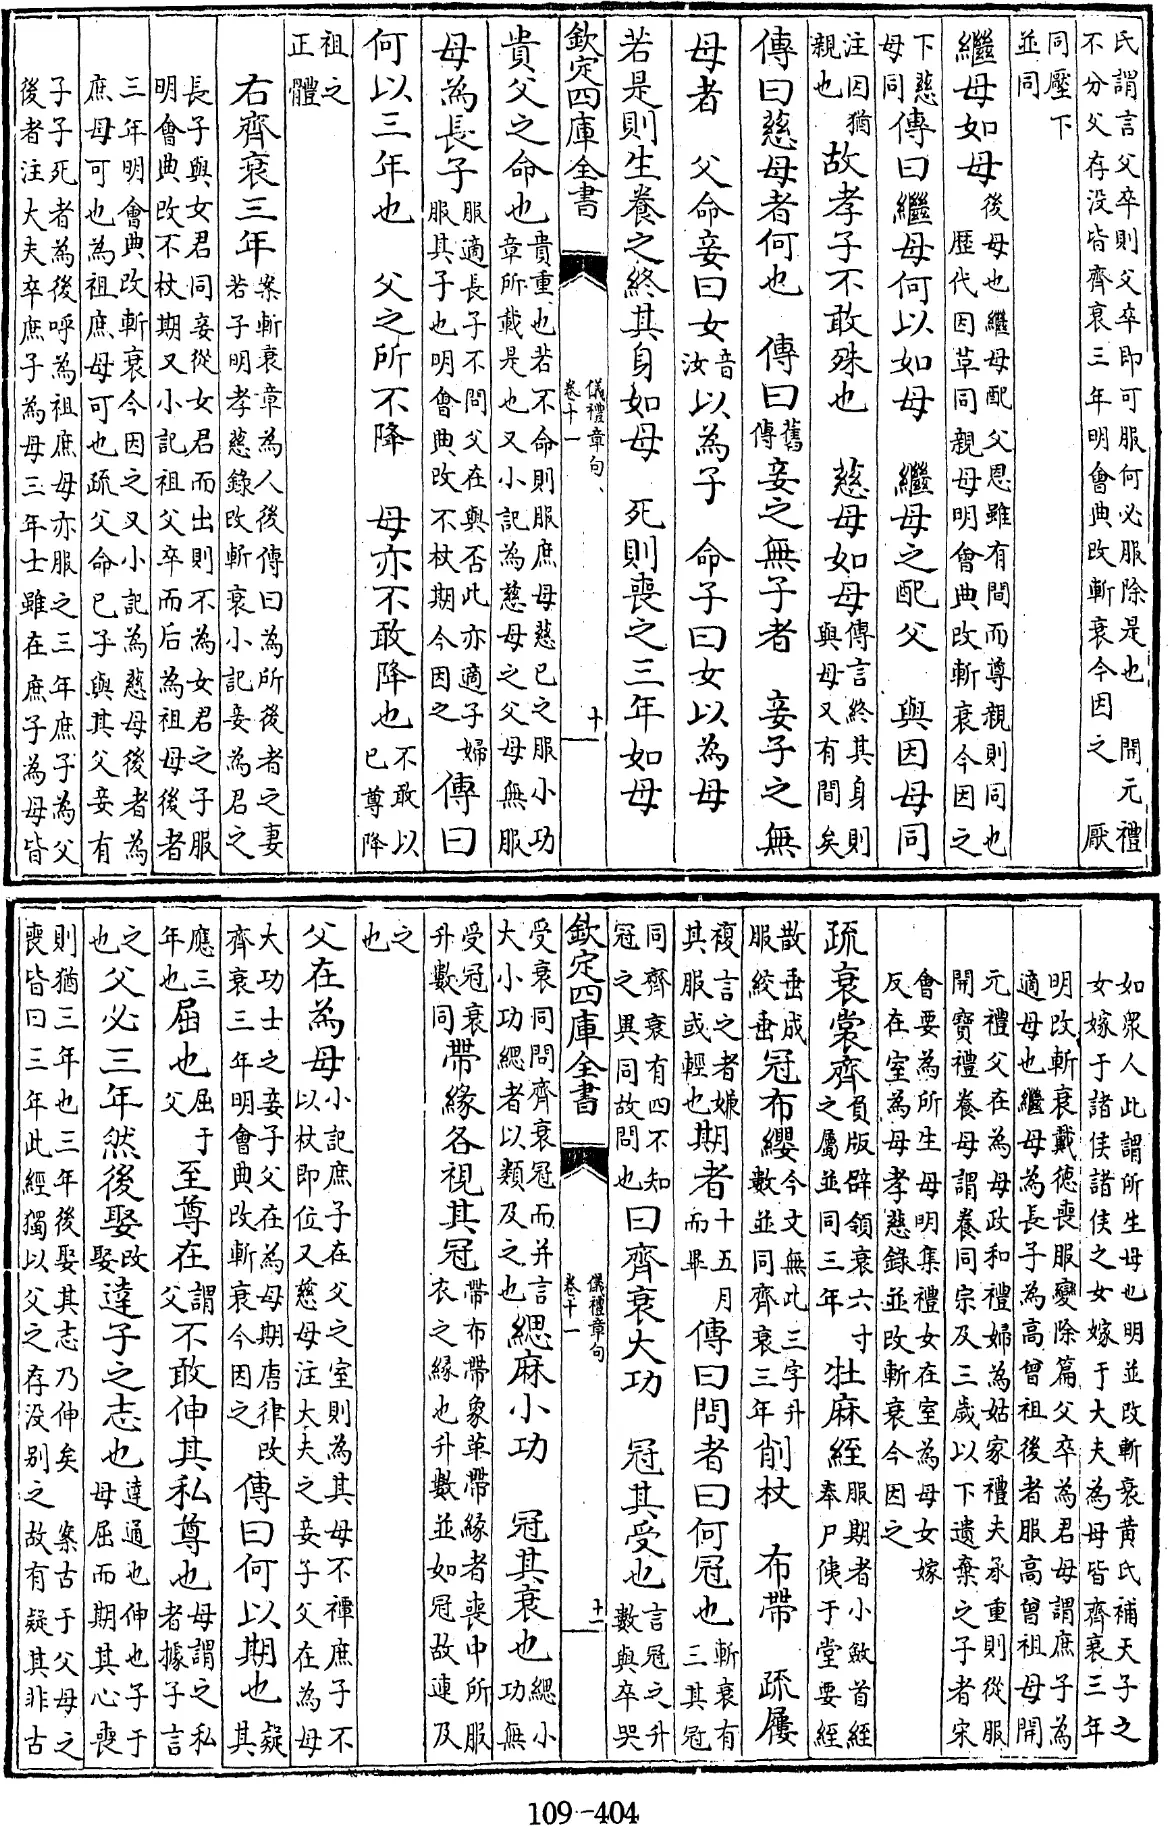 氏謂言父卒則父卒即可服何必服除是也　開元禮
不分父存没皆齊衰三年明會典改斬衰今因之　厭
同壓下
並同
繼母如母後母也繼母配父恩雖有間而尊親則同也歷代因革同親母明會典改斬衰今因之
下慈母同傳曰繼母何以如母　繼母之配父　與因母同
注因猶親也故孝子不敢殊也　慈母如母傳言終其身則與母又有間矣
傳曰慈母者何也　傳曰舊傳妾之無子者　妾子之無
母者　父命妾曰女音汝以為子　命子曰女以為母
若是則生養之終其身如母　死則喪之三年如母
欽定四庫全書　儀禮章句　卷十一　十
貴父之命也貴重也若不命則服庶母慈已之服小功章所載是也又小記為慈母之父母無服
母為長子服適長子不問父在與否此亦適子婦服其子也明會典改不杖期今因之傳曰
何以三年也　父之所不降　母亦不敢降也不敢以已尊降
祖之
正體
右齊衰三年案斬衰章為人後傳曰為所後者之妻若子明孝慈錄改斬衰小記妾為君之
長子與女君同妾從女君而出則不為女君之子服
明會典改不杖期又小記祖父卒而后為祖母後者
三年明會典改斬衰今因之又小記為慈母後者為
庶母可也為祖庶母可也疏父命已子與其父妾有
子子死者為後呼為祖庶母亦服之三年庶子為父
後者注大夫卒庶子為母三年士雖在庶子為母皆
如衆人此謂所生母也明並改斬衰黄氏補天子之
女嫁于諸侯諸侯之女嫁于大夫為母皆齊衰三年
明改斬衰戴德喪服變除篇父卒為君母謂庶子為
適母也繼母為長子為高曾祖後者服高曾祖母開
元禮父在為母政和禮婦為姑家禮夫承重則從服
開寶禮養母謂養同宗及三歲以下遺棄之子者宋
會要為所生母明集禮女在室為母女嫁
反在室為母孝慈錄並改斬衰今因之
疏衰裳齊負版辟領衰六寸之屬並同三年牡麻絰服期者小斂首絰奉尸侇于堂要絰
散垂成服絞垂冠布纓今文無此三字升數並同齊衰三年削杖　布帶　疏屨
複言之者嫌其服或輕也期者十五月而畢傳曰問者曰何冠也斬衰有三其冠
同齊衰有四不知冠之異同故問也曰齊衰大功　冠其受也言冠之升數與卒哭
欽定四庫全書　儀禮章句　卷十一　十一
受衰同問齊衰冠而并言大小功緦者以類及之也緦麻小功　冠其衰也緦小功無
受冠衰升數同帶緣各視其冠帶布帶象革帶緣者喪中所服衣之緣也升數並如冠故連及
之
也
父在為母小記庶子在父之室則為其母不禫庶子不以杖即位又慈母注大夫之妾子父在為母
大功士之妾子父在為母期唐律改齊衰三年明會典改斬衰今因之傳曰何以期也疑其
應三年也屈也屈于父至尊在謂父不敢伸其私尊也母謂之私者據子言
之也父必三年然後娶改娶達子之志也達通也伸也子于母屈而期其心喪
則猶三年也三年後娶其志乃伸矣　案古于父母之
喪皆曰三年此經獨以父之存没别之故有疑其非古
109-404